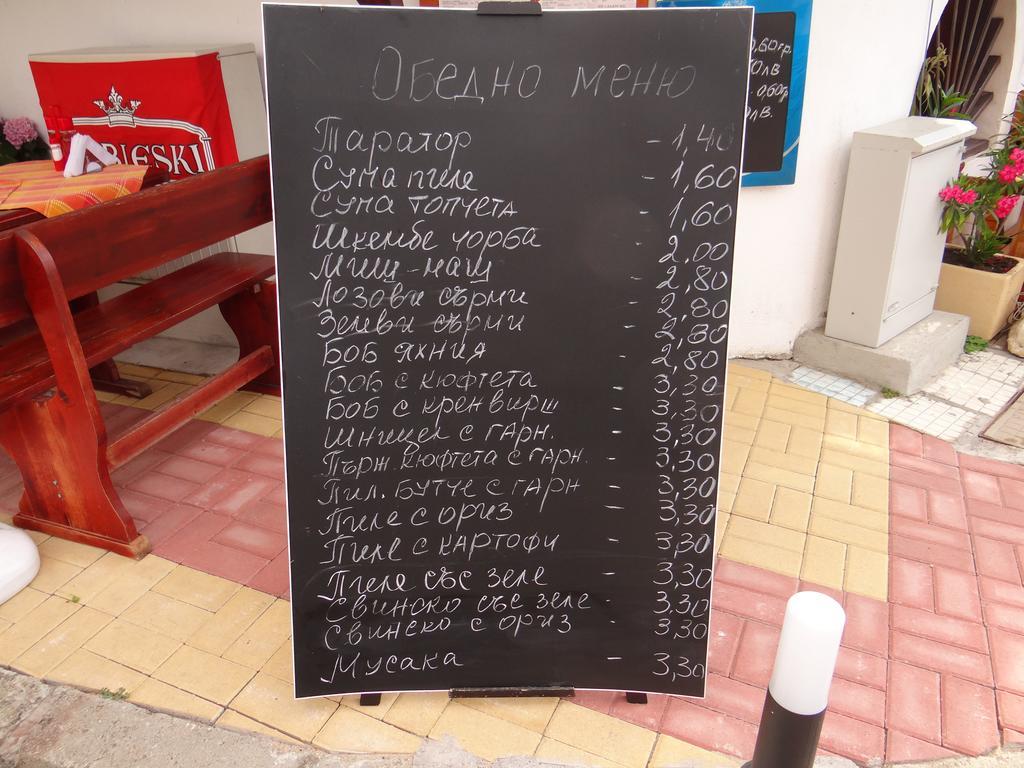 Обедно меню
Таратор - 1,40
Супа пиле - 1,60
Супа топчета - 1,60
Шкембе чорба - 2,00
Миш-маш - 2,80
Лозови сърми - 2,80
Зелеви сърми - 2,80
Боб яхния - 2,80
Боб с кюфтета - 3,30
Боб с кренвирш - 3,30
Шницел с гарн. - 3,30
Пърж. кюфтета с гарн. - 3,30
Пил. бутче с гарн - 3,30
Пиле с ориз - 3,30
Пиле с картофи - 3,30
Пиле със зеле - 3,30
Свинско със зеле - 3,30
Свинско с ориз - 3,30
Мусака - 3,30
BIESKI
0,60гр.
лв
0,60гр
лв.